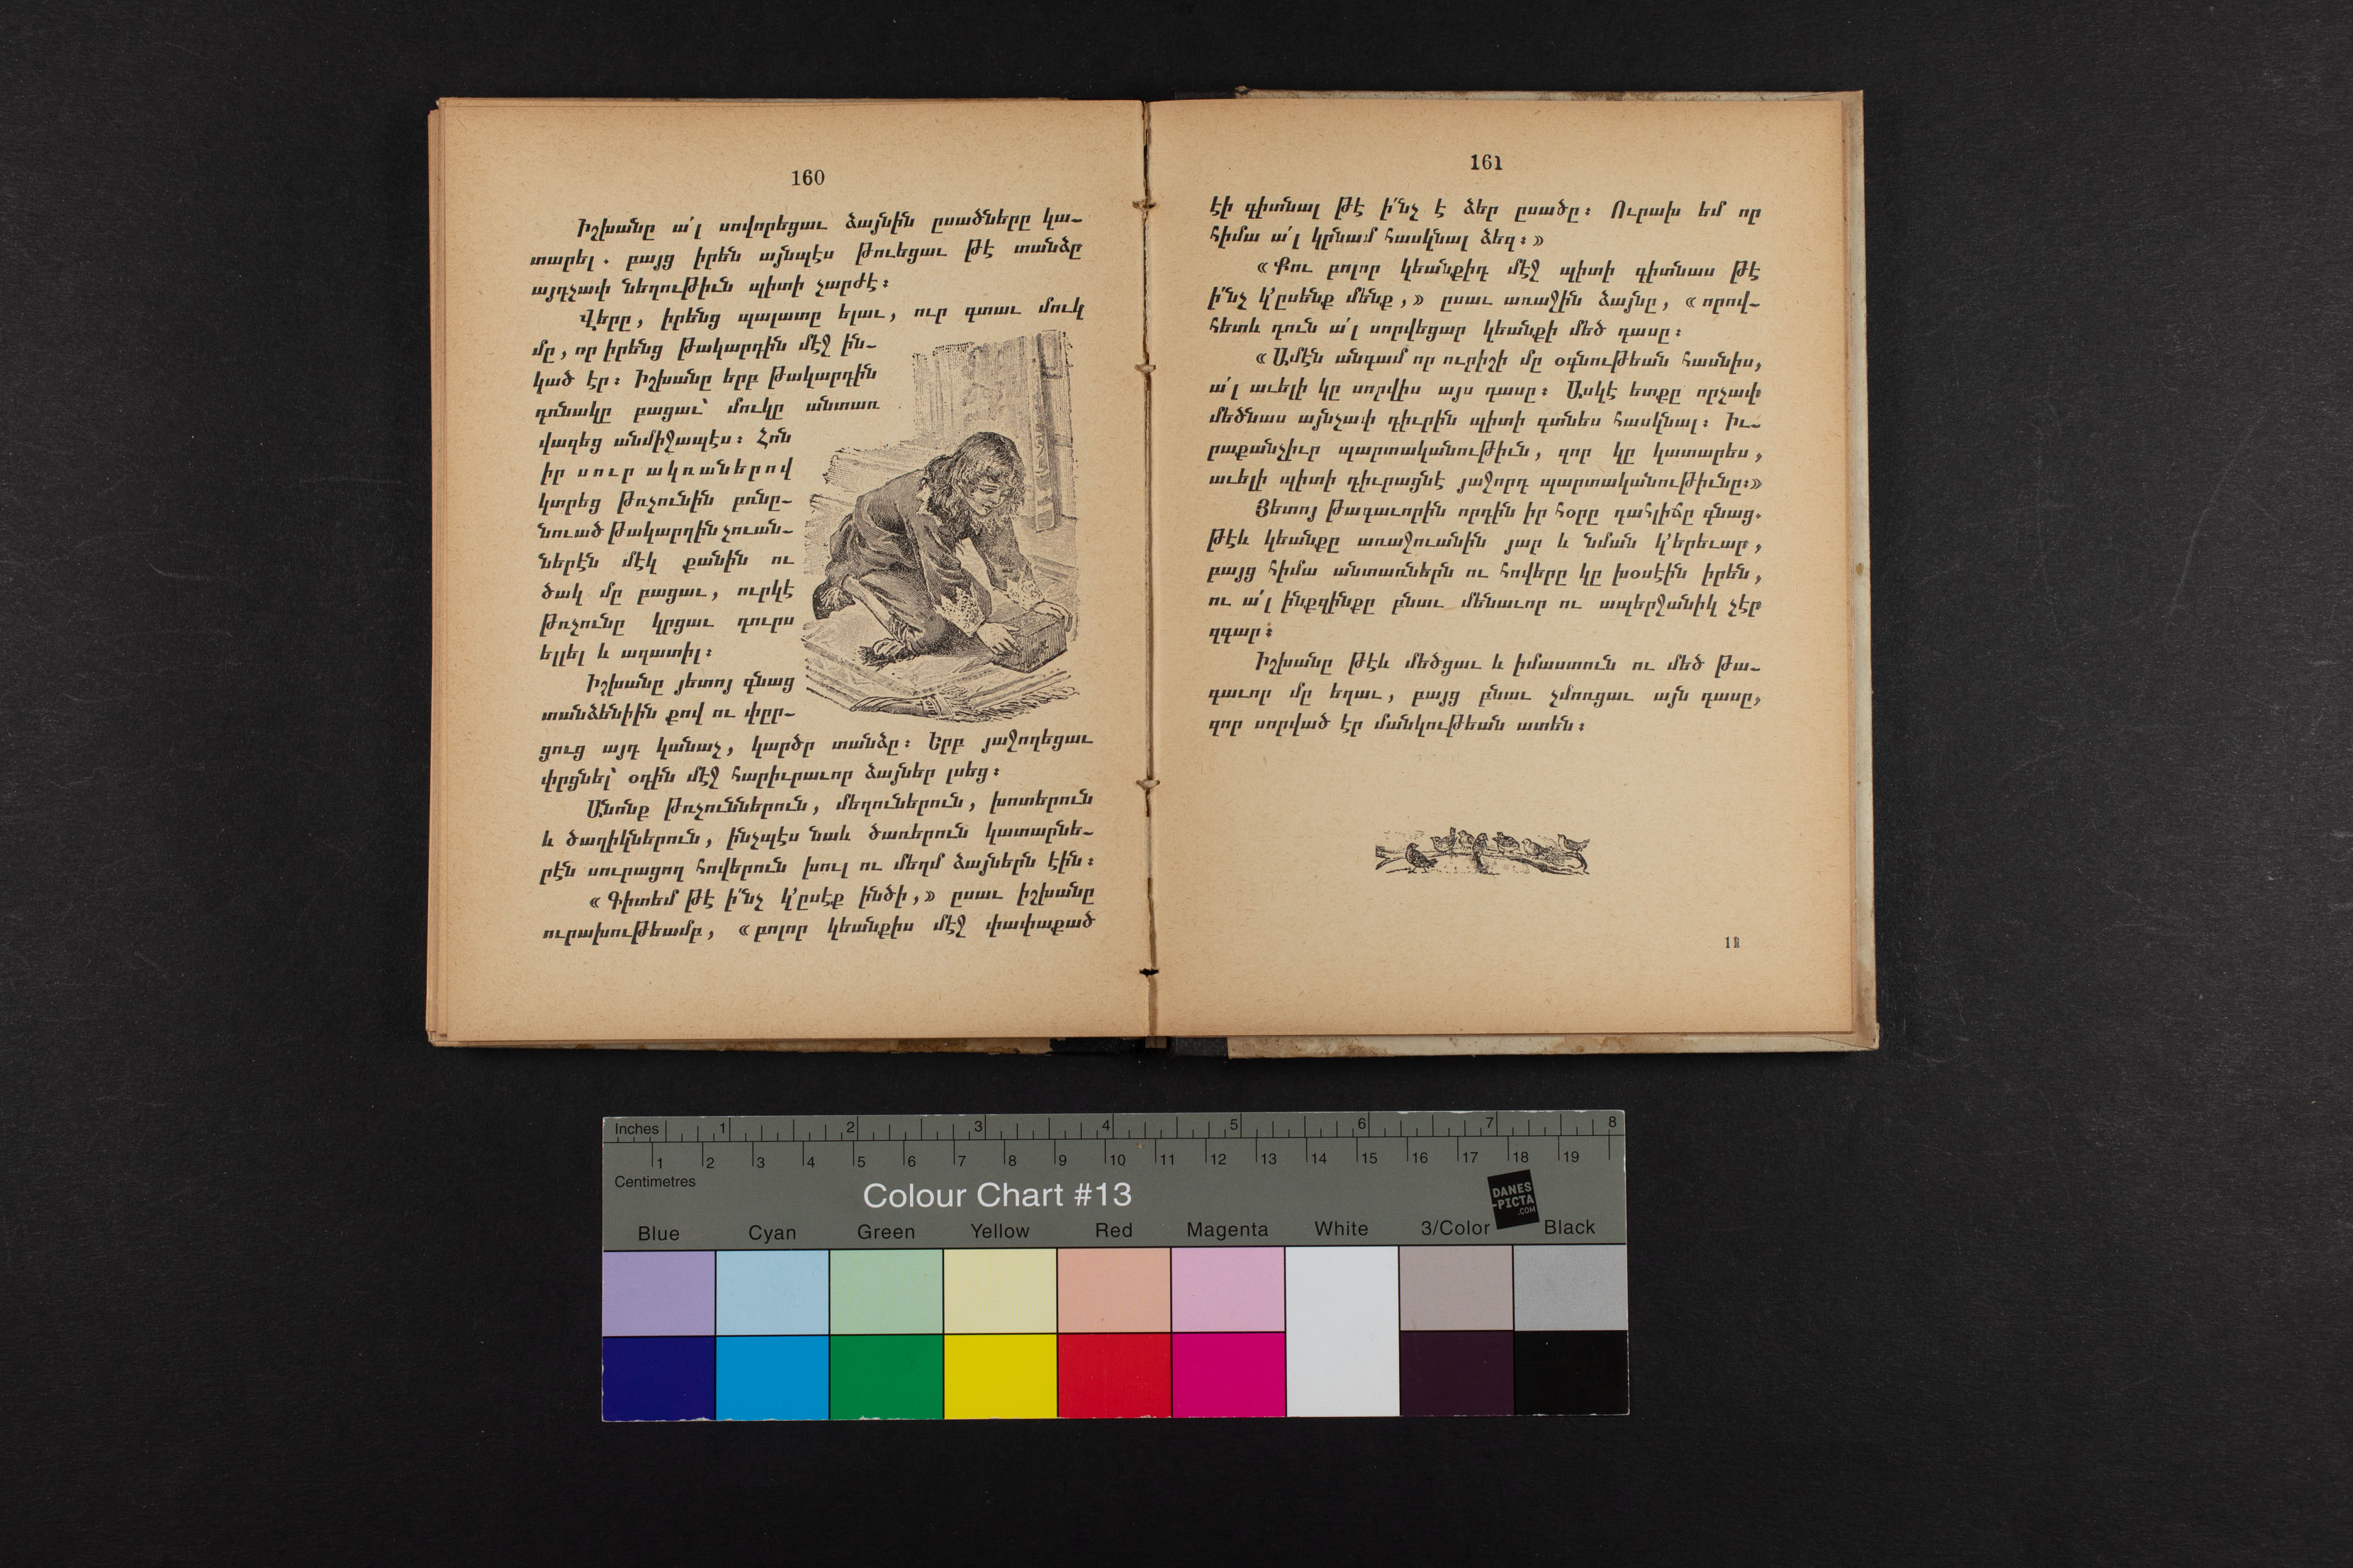 160
Իշխանը ա՛լ սովորեցաւ ձայնին ըսածները կա-
տարել. բայց իրեն այնպէս թուեցաւ թէ տանձը
այդչափ նեղութիւն պիտի չարժէ։
Վերը, իրենց պալատը ելաւ, ուր գտաւ մուկ
մը, որ իրենց թակարդին մէջ ին-
կած էր։ Իշխանը երբ թակարդին
դռնակը բացաւ՝ մուկը անտառ
վազեց անմիջապէս։ Հոն
իր սուր ակռաներով
կտրեց թռչունին բռնը-
նուած թակարդին չուան-
ներէն մէկ քանին ու
ծակ մը բացաւ, ուրկէ
թռչունը կրցաւ դուրս
ելլել և ազատիլ։
Իշխանը յետոյ գնաց
տանձենիին քով ու փըր-
ցուց այդ կանաչ, կարծր տանձը։ Երբ յաջողեցաւ
փրցնել՝ օդին մէջ հարիւրաւոր ձայներ լսեց։
Անոնք թռչուններուն, մեղուներուն, խոտերուն
և ծաղիկներուն, ինչպէս նաև ծառերուն կատարնե-
րէն սուրացող հովերուն խուլ ու մեղմ ձայներն էին։
«Գիտեմ թէ ի՛նչ կ՚ըսէք ինծի,» ըսաւ իշխանը
ուրախութեամբ, «բոլոր կեանքիս մէջ փափաքած
161
էի գիտնալ թէ ի՛նչ է ձեր ըսածը։ Ուրախ եմ որ
հիմա ա՛լ կրնամ հասկնալ ձեզ։»
«Քու բոլոր կեանքիդ մէջ պիտի գիտնաս թէ
ի՛նչ կ՚ըսենք մենք,» ըսաւ առաջին ձայնը, «որով-
հետև դուն ա՛լ սորվեցար կեանքի մեծ դասը։
«Ամէն անգամ որ ուրիշի մը օգնութեան հասնիս,
ա՛լ աւելի կը սորվիս այս դասը։ Ասկէ ետքը որչափ
մեծնաս այնչափ դիւրին պիտի գտնես հասկնալ։ Իւ-
րաքանչիւր պարտականութիւն, զոր կը կատարես,
աւելի պիտի դիւրացնէ յաջորդ պարտականութիւնը։»
Յետոյ թագաւորին որդին իր հօրը դահլիճը գնաց.
թէև կեանքը առաջուանին յար և նման կ՚երեւար,
բայց հիմա անտառներն ու հովերը կը խօսէին իրեն,
ու ա՛լ ինքզինքը բնաւ մենաւոր ու ապերջանիկ չէր
զգար։
Իշխանը թէև մեծցաւ և իմաստուն ու մեծ թա-
գաւոր մը եղաւ, բայց բնաւ չմոռցաւ այն դասը,
զոր սորված էր մանկութեան ատեն։
Inches 1 2 3 4 5 6 7 8
1 2 3 4 5 6 7 8 9 10 11 12 13 14 15 16 17 18 19
Centimetres
Colour Chart #13
DANES
-PICTA
.COM
Blue Cyan Green Yellow Red Magenta White 3/Color Black